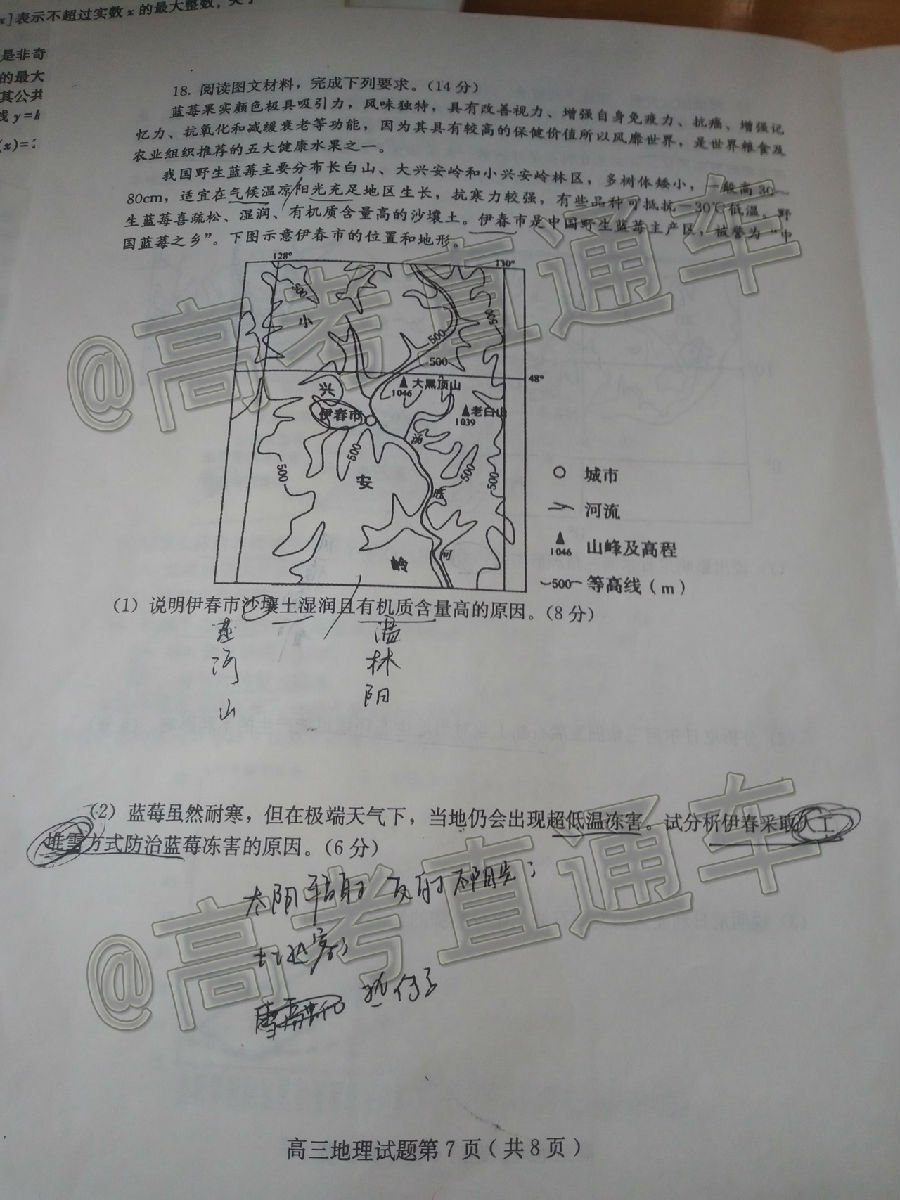 x]表示不超过实数x的最大整数,
是非奇
的最大
其公共
线y=k
(x)=
18. 阅读图文材料，完成下列要求。(14分)
蓝莓果实颜色极具吸引力，风味独特，具有改善视力、增强自身免疫力、抗癌、增强记
忆力、抗氧化和减缓衰老等功能，因为其具有较高的保健价值所以风靡世界，是世界粮食及
农业组织推荐的五大健康水果之一。
我国野生蓝莓主要分布长白山、大兴安岭和小兴安岭林区，多树体矮小，一般高30—
80cm，适宜在气候温凉阳光充足地区生长，抗寒力较强，有些品种可抵抗—30℃低温。野
生蓝莓喜疏松、湿润、有机质含量高的沙壤土。伊春市是中国野生蓝莓主产区，被誉为“中
国蓝莓之乡”。下图示意伊春市的位置和地形。
128° 130°
500 小 500
500
500
48°
兴 1046 大黑顶山
伊春市 老白山
1039
汤
500 500 500 500
安
旺
河
岭
城市
河流
1046 山峰及高程
500 等高线（m）
(1) 说明伊春市沙壤土湿润且有机质含量高的原因。(8分)
温
河 林
山 阳
(2) 蓝莓虽然耐寒，但在极端天气下，当地仍会出现超低温冻害。试分析伊春采取人工
堆雪方式防治蓝莓冻害的原因。(6分)
太阳辐射 反射
高三地理试题第7页（共8页）
@高考直通车
@高考直通车